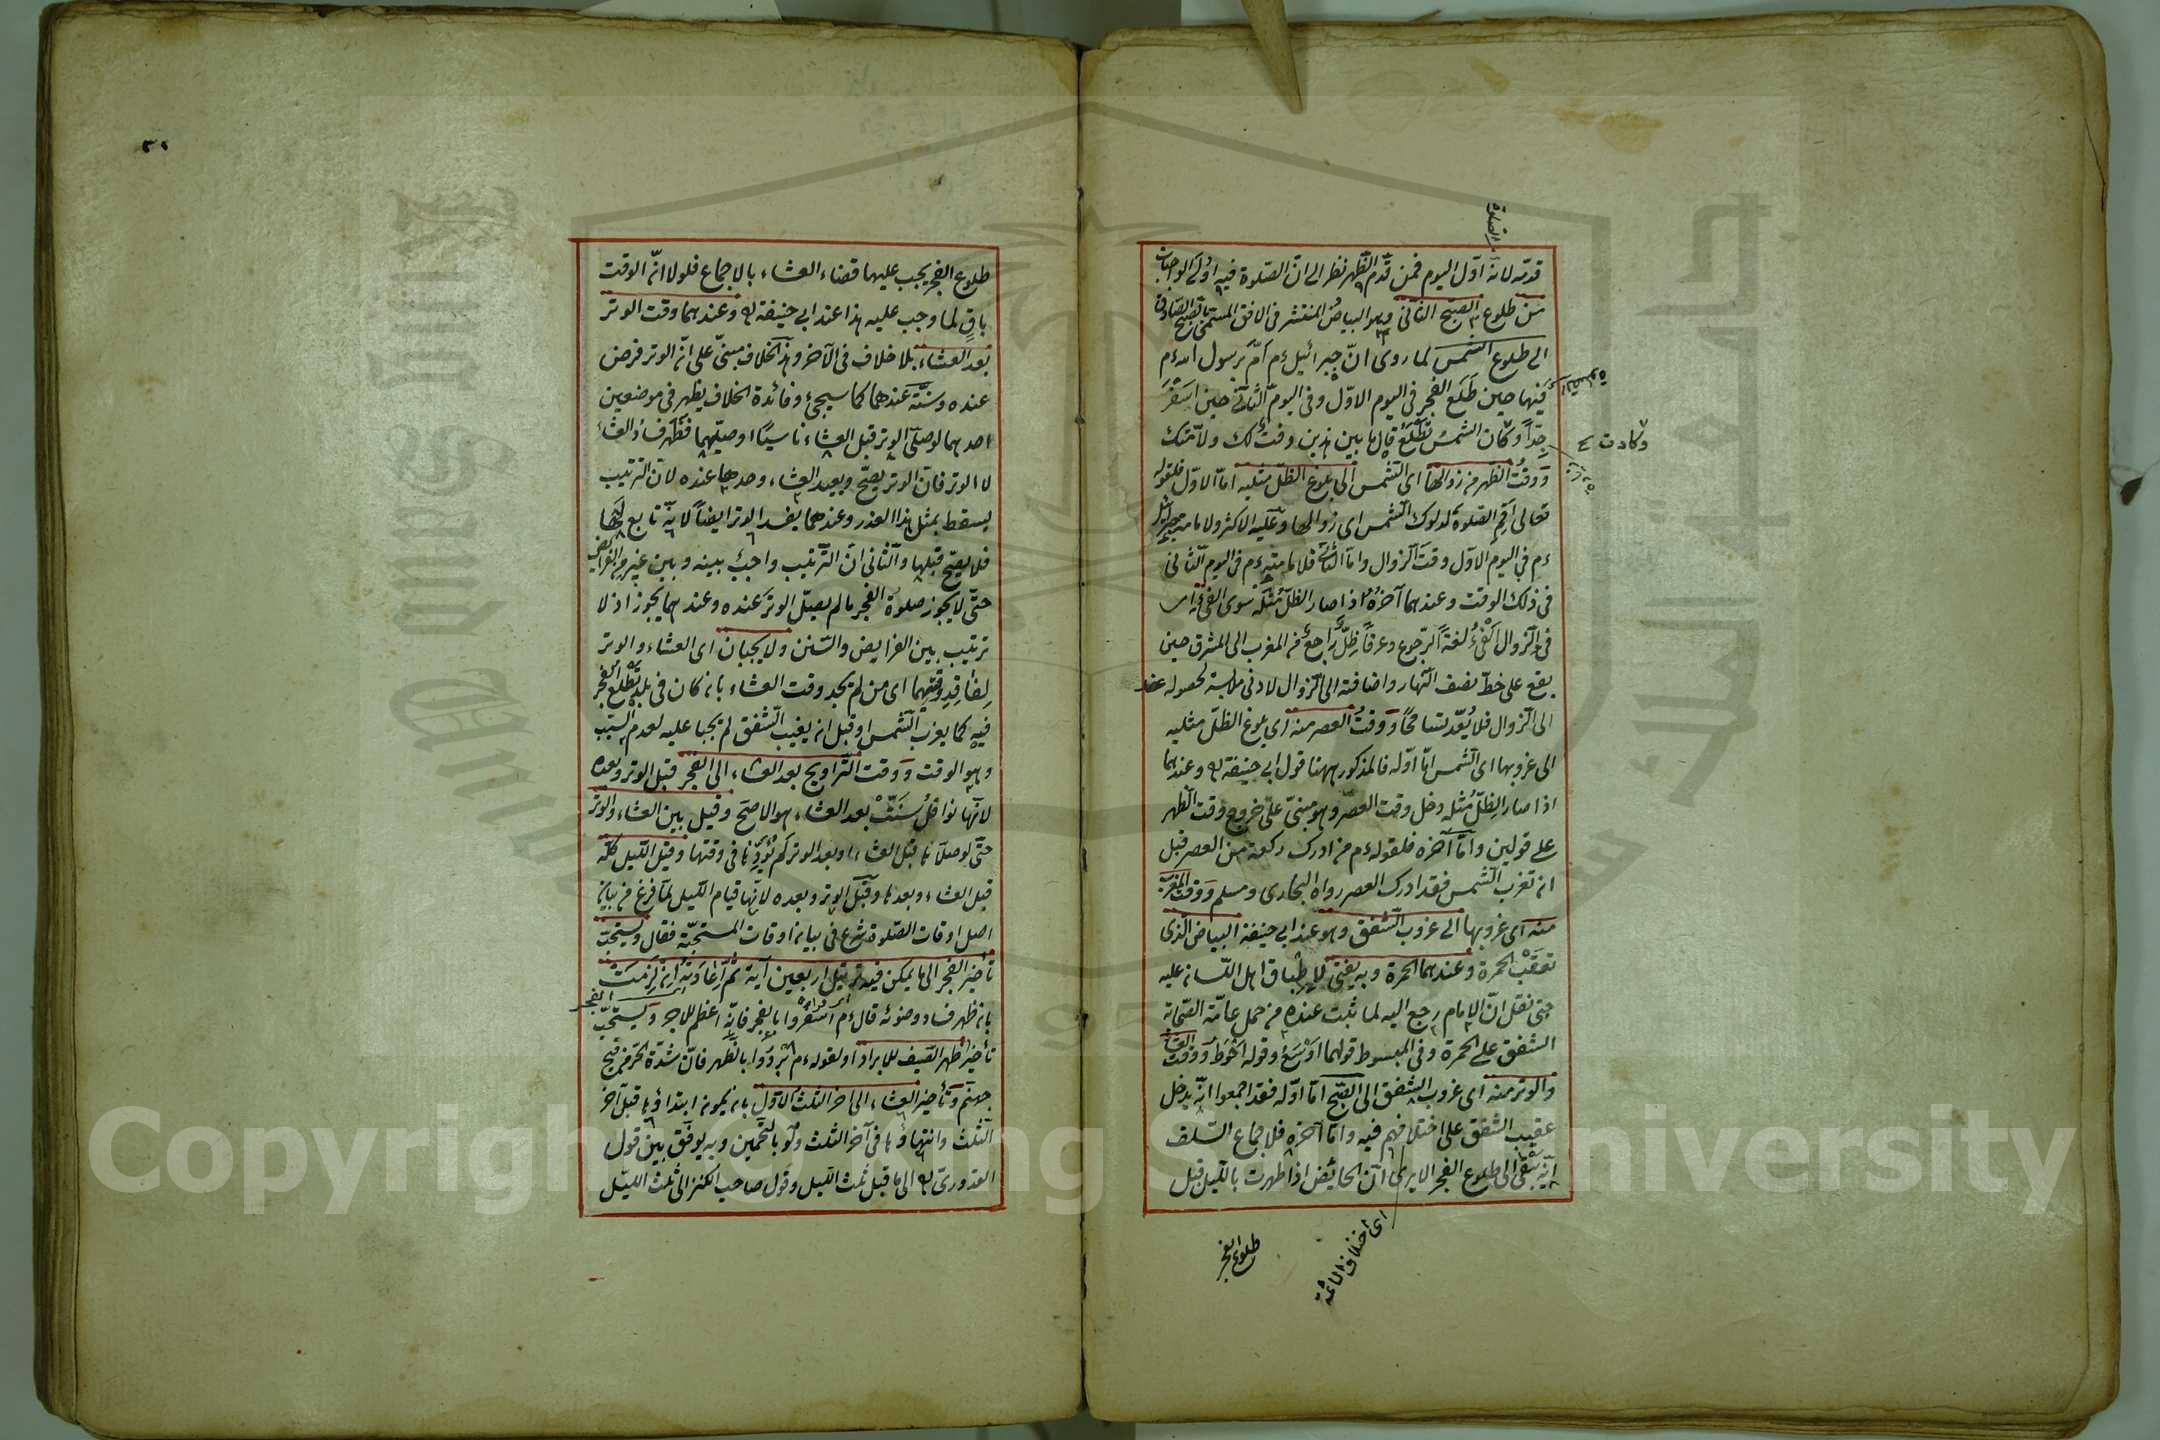 قدمه لانه اول اليوم فمن قدم الظهر نظر الى ان الصلوة فيه اولى الواجبات
من طلوع الصبح الثاني وهو البياض المنتشر في الافق المسمى بالصبح الصادق
الى طلوع الشمس لما روى ان جبرائيل ءم ام برسول الله ءم
فيها حين طلع الفجر في اليوم الاول وفي اليوم الثاني حين اسفر
جدا وكان الشمس تطلع قال ما بين هذين وقت لك ولامتك
ووقت الظهر من زوالها اى الشمس الى بلوغ الظل مثليه اما الاول فلقوله
تعالى اقم الصلوة لدلوك الشمس اى زوالها وعليه الاكثر ولامامة جبرائيل
ءم في اليوم الاول وقت الزوال واما الثاني فلامامته ءم في اليوم الثاني
في ذلك الوقت وعندهما آخره اذا صار الظل مثله سوى الفئ
في الزوال الفئ لغة الرجوع وعرفا ظل راجع من المغرب الى المشرق حين
يقع على خط نصف النهار واضافته الى الزوال لادنى ملابسة لحصوله عند
الى الزوال فلا يعد تسامحا ووقت العصر منه اى بلوغ الظل مثليه
الى غروبها اى الشمس اما اوله فالمذكور ههنا قول ابي حنيفة له وعندهما
اذا صار الظل مثله دخل وقت العصر وهو مبنى على خروج وقت الظهر
على قولين واما آخره فلقوله ءم من ادرك ركعة من العصر قبل
ان تغرب الشمس فقد ادرك العصر رواه البخارى ومسلم ووقت المغرب
منه اى غروبها الى غروب الشفق وهو عند ابي حنيفة البياض الذى
تعقب الحمرة وعندهما الحمرة وبه يفتى لاطباق اهل اللسان عليه
حتى نقل ان الامام رجع اليه لما ثبت عنده من حمل عامة الصحابة
الشفق على الحمرة وفي المبسوط قولهما اوسع وقوله احوط ووقت العشاء
والوتر منه اى غروب الشفق الى الصبح اما اوله فقد اجمعوا انه يدخل
عقيب الشفق على اختلافهم فيه واما آخره فلاجماع السلف
انه يبقى الى طلوع الفجر الا يرى ان الحايض اذا طهرت بالليل قبل
طلوع الفجر
اى اختلاف الائمة
وكادت
طلوع الفجر يجب عليها قضاء العشاء بالاجماع فلولا ان الوقت
باق لما وجب عليه هذا عند ابي حنيفة له وعندهما وقت الوتر
بعد العشاء بلا خلاف في الآخر وهذا الخلاف مبنى على ان الوتر فرض
عنده وسنة عندهما كما سيجئ وفائدة الخلاف يظهر في موضعين
احدهما لو صلى الوتر قبل العشاء ناسيا او صليهما فظهر فساد العشاء
لا الوتر فان الوتر يصح ويعيد العشاء وحدها عنده لان الترتيب
يسقط بمثل هذا العذر وعندهما يفسد الوتر ايضا لانه تابع لها
فلا يصح قبلها والثاني ان الترتيب واجب بينه وبين غيره من الفرائض
حتى لا يجوز صلوة الفجر ما لم يصل الوتر عنده وعندهما يجوز اذ لا
ترتيب بين الفرايض والسنن ولا يجبان اى العشاء والوتر
لفاقد وقتهما اى من لم يجد وقت العشاء بان كان في بلد تطلع الفجر
فيه كما يغرب الشمس او قبل ان يغيب الشفق لم يجبا عليه لعدم السبب
وهو الوقت ووقت التراويح بعد العشاء الى الفجر قبل الوتر وبعده
لانها نوافل سنت بعد العشاء هو الاصح وقيل بين العشاء والوتر
حتى لو صلاها قبل العشاء او بعد الوتر لم يؤدها في وقتها وقيل الليل كله
قبل العشاء وبعدها وقبل الوتر وبعده لانها قيام الليل لما فرغ من بيان
اصل اوقات الصلوة شرع في بيان اوقات المستحبة فقال ويستحب
تأخير الفجر الى ما يمكن فيه ترتيل اربعين آية ثم اعادته ان لزمت
بان ظهر فساد وضوئه قال ءم اسفروا بالفجر فانه اعظم للاجر ويستحب
تأخير ظهر الصيف للابراد لقوله ءم ابردوا بالظهر فان شدة الحر من فيح
جهنم وتأخير العشاء الى آخر الثلث الاول بان يكون ابتداؤها قبل آخر
الثلث وانتهاؤها في آخر الثلث ولو بالتخمين وبه يوفق بين قول
القدورى له الى ما قبل ثلث الليل وقول صاحب الكنز الى ثلث الليل
Copyright © King Saud University